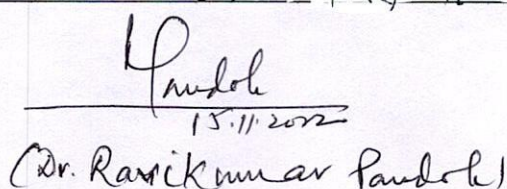 Pandoh
15.11.2022
(Dr. Ravikumar Pandoh)